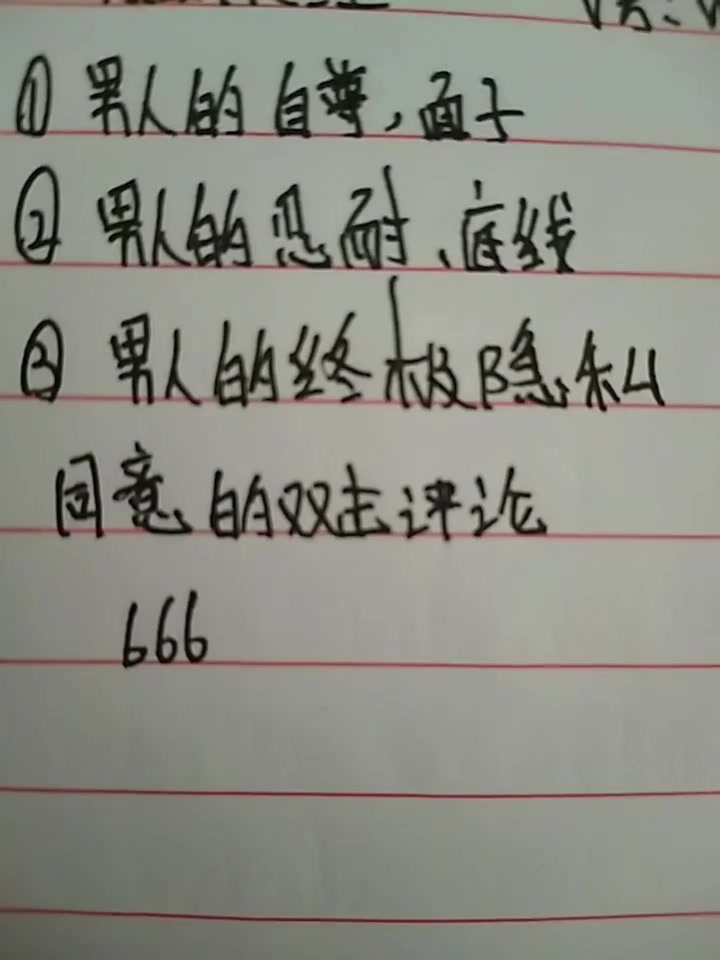 ①男人的自尊,面子
②男人的忍耐、底线
③男人的终极隐私
同意的双击评论
666